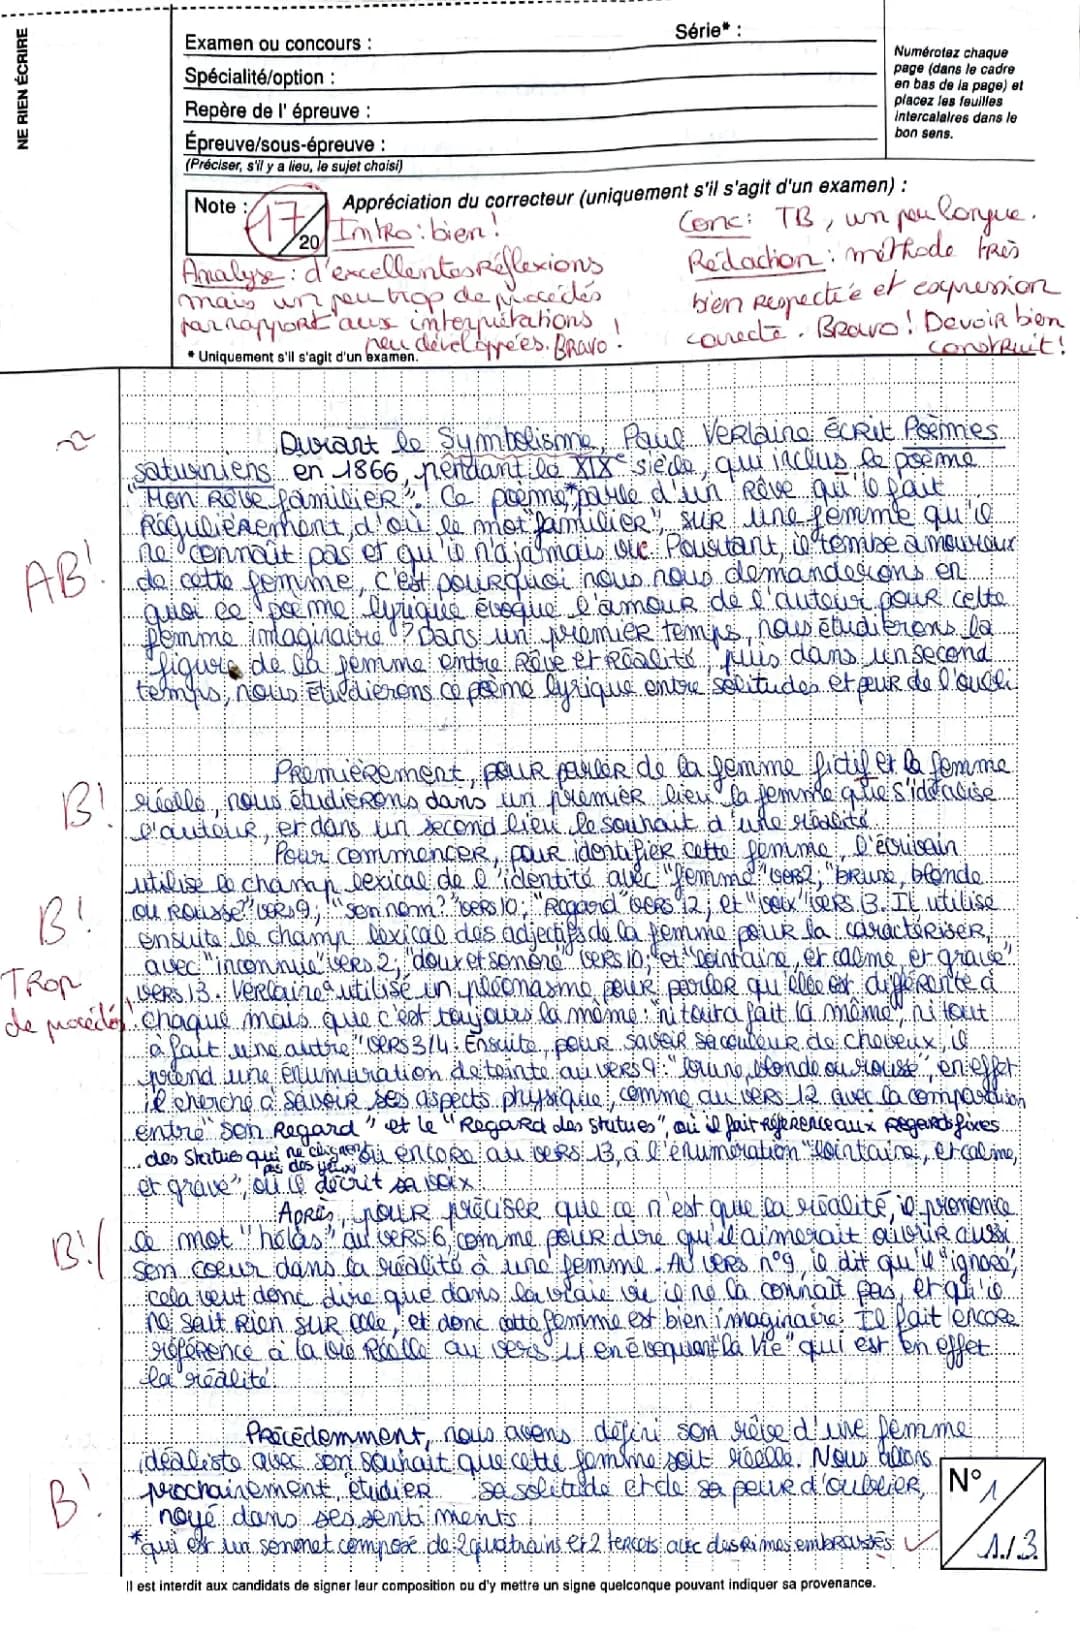 NE RIEN ÉCRIRE
Examen ou concours :
Série* :
Spécialité/option :
Repère de l' épreuve :
Épreuve/sous-épreuve :
(Préciser, s'il y a lieu, le sujet choisi)
Numérotez chaque
page (dans le cadre
en bas de la page) et
placez les feuilles
intercalaires dans le
bon sens.
Note : 17/20
Appréciation du correcteur (uniquement s'il s'agit d'un examen) :
Intro : bien !
Analyse : d'excellentes réflexions
mais un peu trop de procédés
par rapport aux interprétations
peu développées. Bravo !
Conc : TB, un peu longue.
Rédaction : méthode très
bien respectée et expression
correcte. Bravo ! Devoir bien
construit !
* Uniquement s'il s'agit d'un examen.
~
Durant le Symbolisme, Paul Verlaine écrit Poèmes
saturniens en 1866, pendant le XIXe siècle, qui inclus le poème
"Mon Rêve familier". Ce poème* parle d'un rêve qu'il fait
régulièrement, d'où le mot "familier", sur une femme qu'il
ne connaît pas et qu'il n'a jamais vue. Pourtant, il tombe amoureux
AB !
de cette femme, c'est pourquoi nous nous demanderons en
quoi ce poème lyrique évoque l'amour de l'auteur pour cette
femme imaginaire ? Dans un premier temps, nous étudierons la
figure de la femme entre Rêve et Réalité, puis dans un second
temps, nous étudierons ce poème lyrique entre solitudes et peur de l'oubli
Premièrement, pour parler de la femme fictif et la femme
B !
réelle, nous étudierons dans un premier lieu la femme que s'idéalise
l'auteur, et dans un second lieu le souhait d'une réalité.
Pour commencer, pour identifier cette femme, l'écrivain
utilise le champ lexical de l'identité avec "femme" vers 2; "brune, blonde
B !
ou rousse?" vers 9; "son nom?" vers 10; "Regard" vers 12; et "voix" vers 13. Il utilise
ensuite le champ lexical des adjectifs de la femme pour la caractériser,
avec "inconnue" vers 2; "doux et sonore" vers 10; et "lointaine, et calme, et grave"
Trop
de procédés
vers 13. Verlaine utilise un pléonasme pour parler qu'elle est différente à
chaque mais que c'est toujours la même : "ni tout à fait la même", ni tout
à fait une autre" vers 3/4. Ensuite, pour savoir sa couleur de cheveux, il
prend une énumuration de teinte au vers 9 : "brune, blonde ou rousse", en effet
il cherche à savoir ses aspects physique, comme au vers 12 avec la comparaison
entre "son Regard" et le "Regard des statues", où il fait référence aux Regards fixes
des Statues qui ne clignent pas des yeux ou encore au vers 13, à l'énumération "lointaine, et calme,
et grave", où il décrit sa voix.
Après, pour préciser que ce n'est que la réalité, il prononce
B !
le mot "hélas" au vers 6 comme pour dire qu'il aimerait ouvrir aussi
son coeur dans la réalité à une femme. Au vers n°9, il dit qu'il "ignore",
cela veut donc dire que dans la vraie vie il ne la connaît pas, et qu'il
ne sait rien sur elle, et donc cette femme est bien imaginaire. Il fait encore
référence à la vie Réelle au vers 11 en évoquant "la Vie" qui est en effet
la réalité.
Précédemment, nous avons défini son rêve d'une femme
idéaliste avec son souhait que cette femme soit réelle. Nous allons
B !
prochainement, étudier sa solitude et de sa peur d'oublier,
noyé dans ses sentiments.
*qui est un sonnet composé de 2 quatrains et 2 tercets avec des rimes embrassés
N° 1
1/3
Il est interdit aux candidats de signer leur composition ou d'y mettre un signe quelconque pouvant indiquer sa provenance.